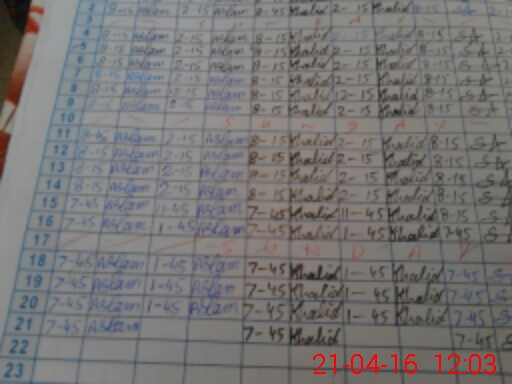 2 8-15 Aslam 2-15 Aslam 8-45 Khalid 2-15 Khalid 8-15 S A
3 S U N D A Y
4 8-15 Aslam 2-15 Aslam 8-15 Khalid 2-15 Khalid 8-15 S A
5 8-15 Aslam 2-15 Aslam 8-15 Khalid 2-15 Khalid 8-15 S A
6 8-15 Aslam 2-15 Aslam 8-15 Khalid 2-15 Khalid 8-15 S A
7 8-15 Aslam 2-15 Aslam 8-15 Khalid 2-15 Khalid 8-15 S A
8 8-15 Aslam Aslam 8-15 Khalid 2-15 Khalid 8-15 S A
9 8-15 Aslam 2-15 Aslam 8-15 Khalid 2-15 Khalid 8-15 S A
10 S U N D A Y
11 Aslam 2-15 Aslam 8-15 Khalid 2-15 Khalid 8-15 S A
12 8-15 Aslam 2-15 Aslam 8-15 Khalid 2-15 Khalid 8-15 S A
13 8-15 Aslam 2-15 Aslam 8-15 Khalid 2-15 Khalid 8-15 S A
14 8-15 Aslam 2-15 Aslam 8-15 Khalid 2-15 Khalid 8-15 S A
15 7-45 Aslam 11-45 Aslam 7-45 Khalid 11-45 Khalid 8-15 S A
16 7-45 Aslam 1-45 Aslam 7-45 Khalid 1-45 Khalid 7-45 S A
17 S U N D A Y
18 7-45 Aslam 1-45 Aslam 7-45 Khalid 1-45 Khalid 7-45 S
19 7-45 Aslam 1-45 Aslam 7-45 Khalid 1-45 Khalid 7-45 S
20 7-45 Aslam 1-45 Aslam 7-45 Khalid 1-45 Khalid 7-45 S
21 7-45 Aslam 7-45 Khalid 7-45 S
22
23
21-04-16 12:03